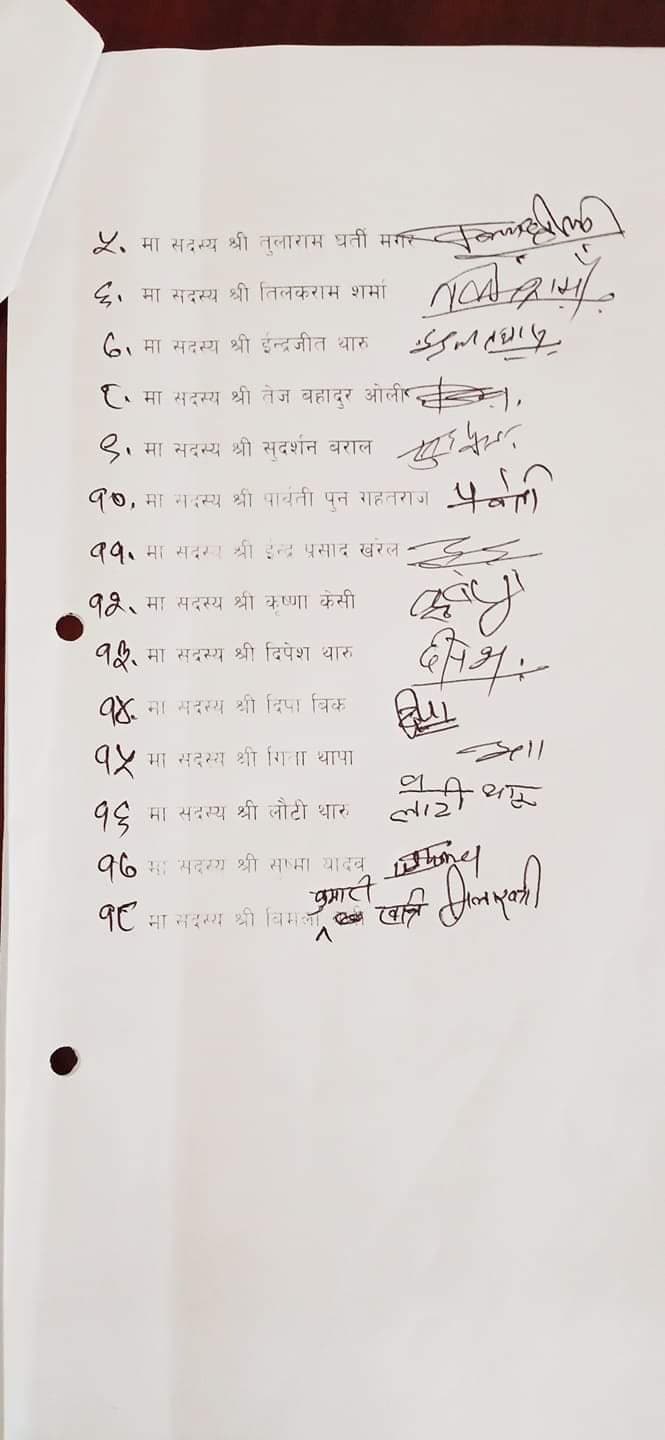 ५. मा सदस्य श्री तुलाराम घर्ती मगर
६. मा सदस्य श्री तिलकराम शर्मा
७. मा सदस्य श्री ईन्द्रजीत थारु
८. मा सदस्य श्री तेज बहादुर ओली
९. मा सदस्य श्री सुदर्शन बराल
१०. मा सदस्य श्री पार्वती पुन गहतराज पार्वती
११. मा सदस्य श्री ईन्द्र प्रसाद खरेल
१२. मा सदस्य श्री कृष्णा केसी
१३. मा सदस्य श्री दिपेश थारु दीपेश.
१४. मा सदस्य श्री दिपा बिक
१५ मा सदस्य श्री गिता थापा
१६ मा सदस्य श्री लौटी थारु लौटी थारू
१७ मा सदस्य श्री सुष्मा यादव
१८ मा सदस्य श्री बिमला कुमारी खत्रि